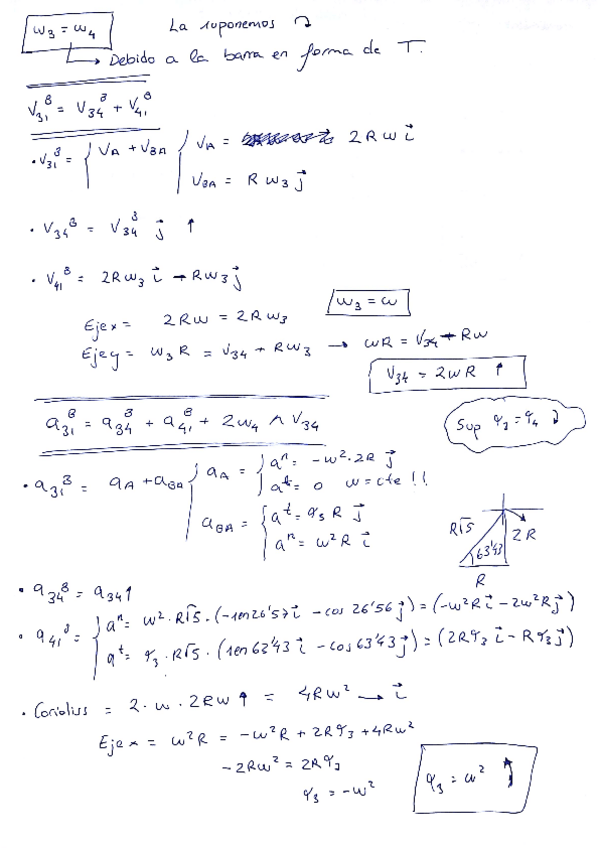 ω3 = ω4   La suponemos ↷
→ Debido a la barra en forma de T.
V31^B = V34^B + V41^B
· V31^B = { VA + VBA { VA = 2Rω i⃗
VBA = R ω3 j⃗
· V34^B = V34^B j⃗ ↑
· V41^B = 2Rω3 i⃗ - Rω3 j⃗
ω3 = ω
Eje x = 2Rω = 2Rω3
Eje y = ω3 R = V34 - Rω3 → ωR = V34 - Rω
V34 = 2ωR ↑
a31^B = a34^B + a41^B + 2ω4 ∧ V34
Sup φ3 = φ4 ↷
· a31^B = aA + aBA { aA = { a^n = -ω²·2R j⃗
a^t = 0 ω=cte !!
aBA = { a^t = φ3 R j⃗
a^n = ω² R i⃗
R√5 2R
63'43
R
· a34^B = a34 ↑
· a41^B = { a^n = ω²·R√5·(-sen26'57 i⃗ - cos 26'56 j⃗) = (-ω²R i⃗ - 2ω²R j⃗)
a^t = φ3·R√5·(sen63'43 i⃗ - cos63'43 j⃗) = (2Rφ3 i⃗ - Rφ3 j⃗)
· Corioliss = 2·ω·2Rω ↑ = 4Rω² → i⃗
Eje x = ω²R = -ω²R + 2Rφ3 + 4Rω²
-2Rω² = 2Rφ3
φ3 = -ω²
φ3 = ω² ↺